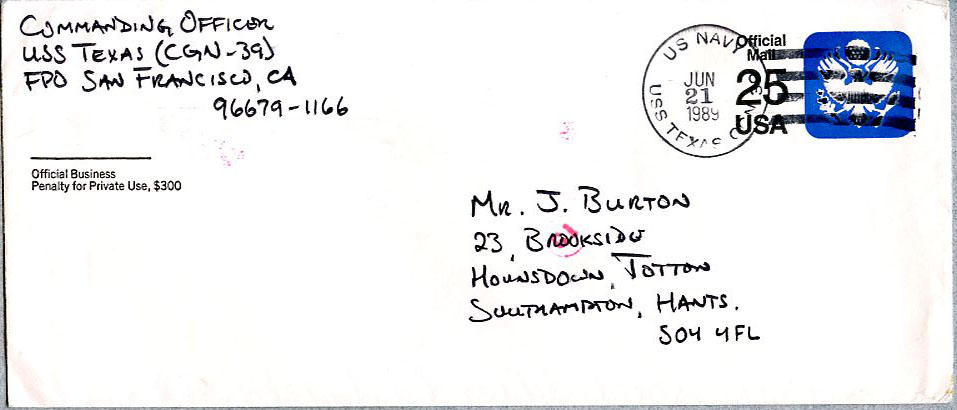 COMMANDING OFFICER
USS TEXAS (CGN-39)
FPO SAN FRANCISCO, CA
96679-1166
Official Business
Penalty for Private Use, $300
US NAVY
JUN
21
1989
USS TEXAS
Official
Mail
25
USA
MR. J. BURTON
23, BROOKSIDE
HOUNSDOWN, TOTTON
SOUTHAMPTON, HANTS.
SO4 4FL